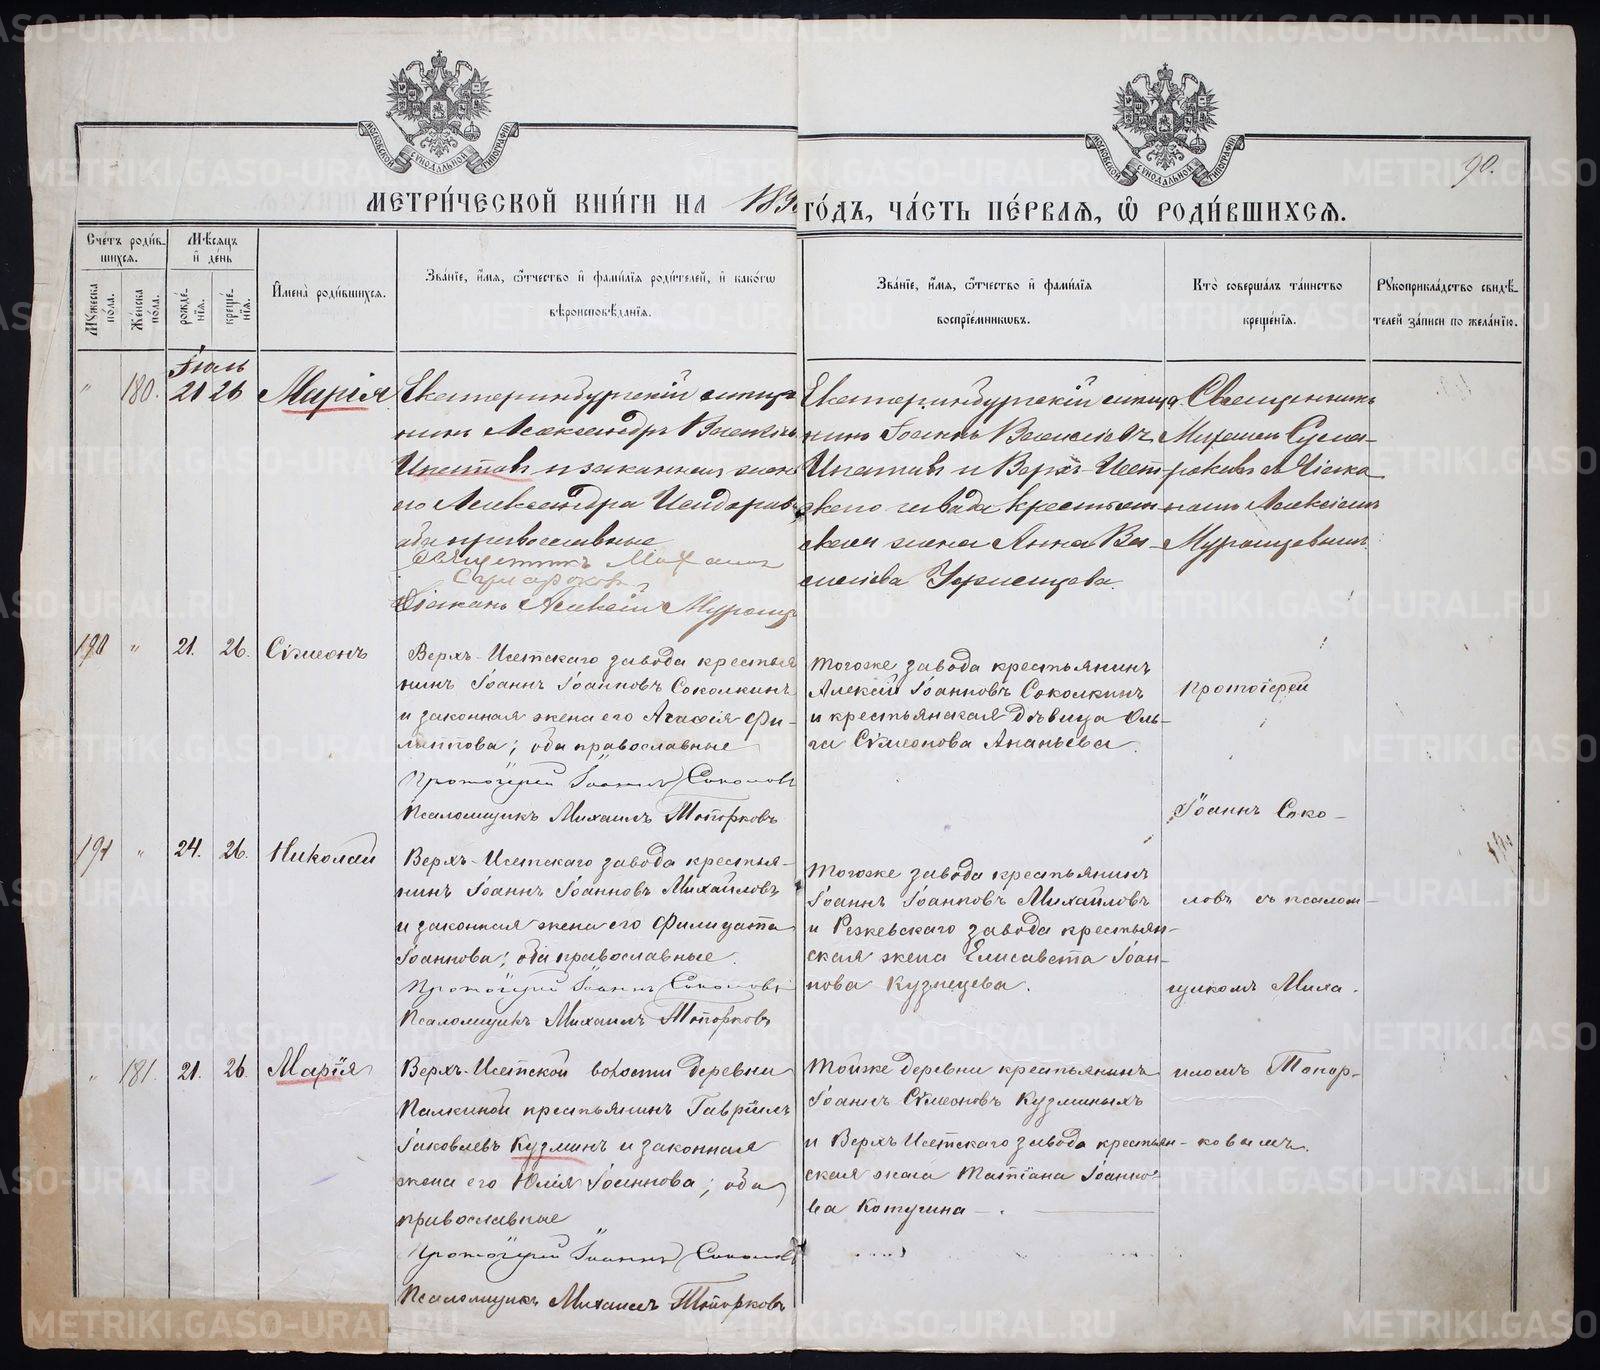 90.
МЕТРИ́ЧЕСКОЙ КНИ́ГИ НА 189 ГО́ДЪ, ЧА́СТЬ ПЕ́РВАЯ, Ѡ РОДИ́ВШИХСЯ.
Сче́тъ роди́вшихся.
Му́жеска по́ла.
Же́нска по́ла.
Мѣ́сяцъ и де́нь
рожде́нія.
креще́нія.
Имена̀ роди́вшихся.
Зва́ніе, и́мя, ѻ́тчество и фами́лія роди́телей, и како́гѡ
вѣроисповѣ́данія.
Зва́ніе, и́мя, ѻ́тчество и фами́лія
воспріе́мниковъ.
Кто̀ соверша́лъ та́инство
креще́нія.
Рукоприкла́дство свидѣ́-
телей за́писи по жела́нію.
Іюль
" 180. 21 26 Марія
Екатеринбургскій мѣща
нинъ Александръ Васильев
Ипатовъ и законная жена
его Александра Исидоров
оба православные
Священникъ Михаилъ
Сумароковъ
Діаконъ Алексѣй Муромц
Екатеринбургскій мѣща
нинъ Іоаннъ Васильевъ
Ипатовъ и Верхъ-Исет
скаго завода крестьян
ская жена Анна Ва-
сильева Кузнецова
Священникъ
Михаилъ Сума-
роковъ съ Діако
номъ Алексѣемъ
Муромцевымъ
190 " 21. 26. Сѵмеонъ
Верхъ-Исетскаго завода крестья
нинъ Іоаннъ Іоанновъ Соколкинъ
и законная жена его Агафія Фи-
липпова; оба православные
Протоіерей Іоаннъ Соколовъ
Псаломщикъ Михаилъ Топорковъ
Тогоже завода крестьянинъ
Алексѣй Іоанновъ Соколкинъ
и крестьянская дѣвица Оль-
га Сѵмеонова Ананьева
Протоіерей
Іоаннъ Соко-
191 " 24. 26. Николай
Верхъ-Исетскаго завода крестья-
нинъ Іоаннъ Іоанновъ Михайловъ
и законная жена его Филицата
Іоаннова; оба православные.
Протоіерей Іоаннъ Соколовъ
Псаломщикъ Михаилъ Топорковъ
Тогоже завода крестьянинъ
Іоаннъ Іоанновъ Михайловъ
и Режевскаго завода крестьян-
ская жена Елисавета Іоан-
нова Кузнецева.
ловъ съ псалом-
щикомъ Миха-
" 181. 21. 26. Марія
Верхъ-Исетской волости деревни
Палкиной крестьянинъ Гавріилъ
Іаковлевъ Кузминъ и законная
жена его Юлія Іоаннова; оба
православные
Протоіерей Іоаннъ Соколовъ
Псаломщикъ Михаилъ Топорковъ
Тойже деревни крестьянинъ
Іоаннъ Сѵмеоновъ Кузминыхъ
и Верхъ Исетскаго завода крестьян-
ская жена Татіана Іоанно-
ва Котугина
иломъ Топор-
ковымъ.
METRIKI.GASO-URAL.RU